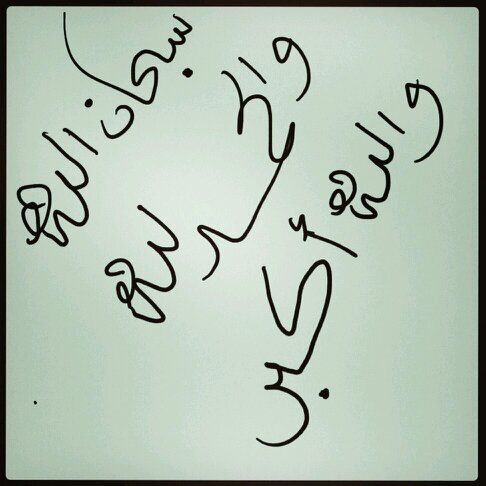 سبحان الله
والحمد لله
والله أكبر